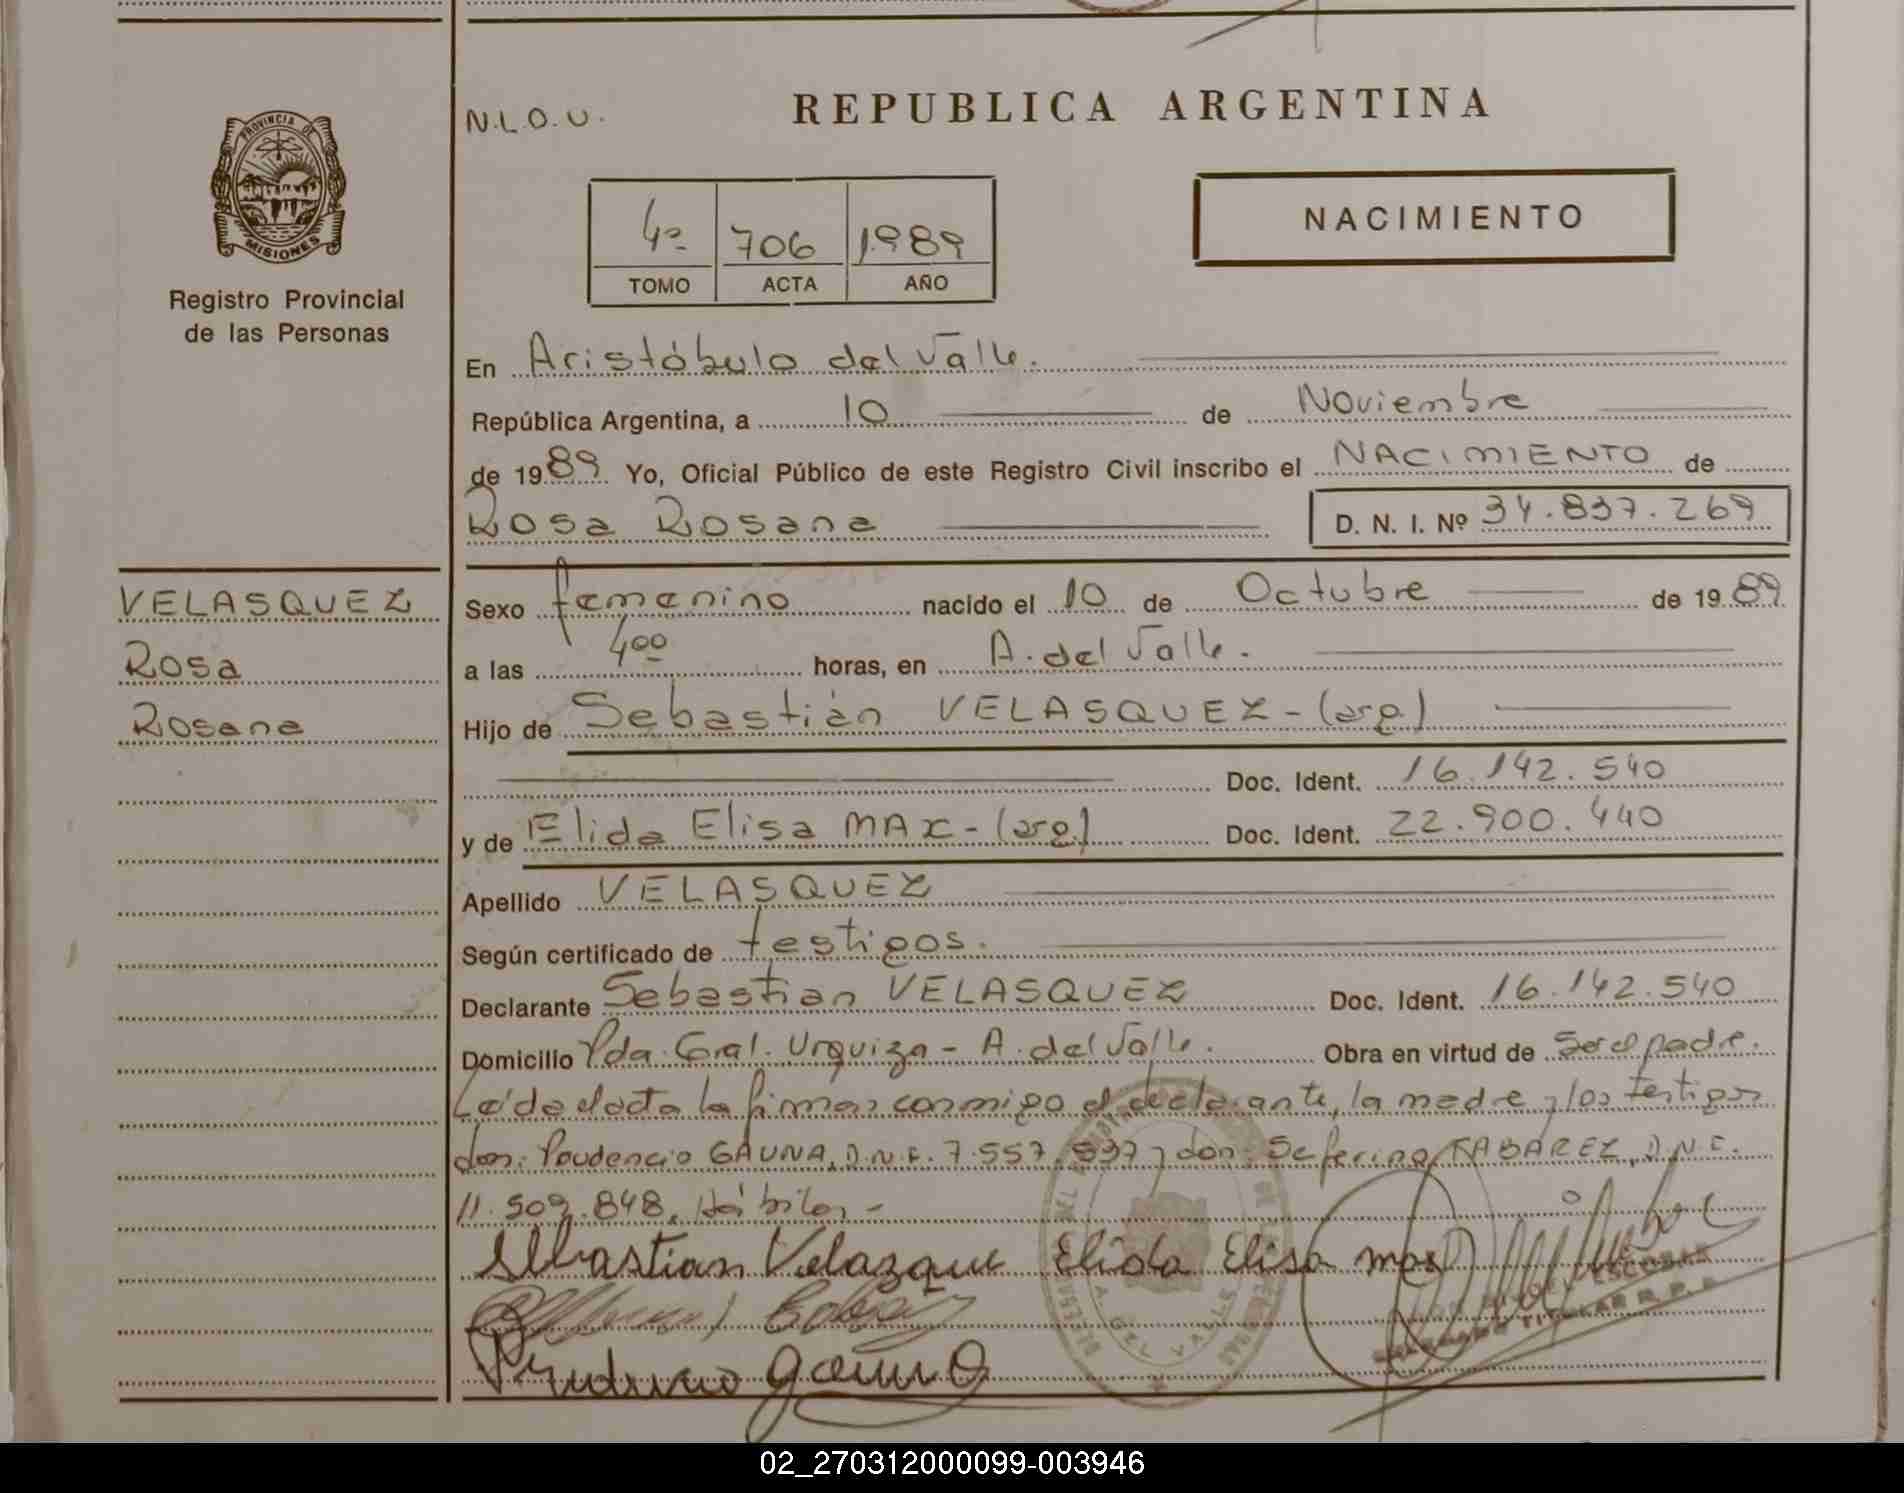 N.L.O.U.
REPUBLICA ARGENTINA
PROVINCIA DE
MISIONES
Registro Provincial
de las Personas
4º 706 1989
TOMO ACTA AÑO
NACIMIENTO
En Aristóbulo del Valle.
República Argentina, a 10 de Noviembre
de 1989 Yo, Oficial Público de este Registro Civil inscribo el NACIMIENTO de
Rosa Rosana D. N. I. Nº 34.837.269
VELASQUEZ
Rosa
Rosana
Sexo femenino nacido el 10 de Octubre de 1989
a las 4⁰⁰ horas, en A. del Valle.
Hijo de Sebastián VELASQUEZ - (arg.)
Doc. Ident. 16.142.540
y de Elida Elisa MAX - (arg.) Doc. Ident. 22.900.440
Apellido VELASQUEZ
Según certificado de testigos.
Declarante Sebastian VELASQUEZ Doc. Ident. 16.142.540
Domicilio Pda. Gral. Urquiza - A. del Valle. Obra en virtud de Ser el padre.
Leída el acta la firman conmigo el declarante, la madre y los testigos
don: Prudencio GAUNA, D.N.I. 7.557.537 y don: Seferino TABAREZ, D.N.I.
11.509.848, Hábiles -
Sebastian Velazque Elida Elisa max
Prudencio Gauna
A. DEL VALLE
ESCOBAR
TITULAR R. P. P.
02_270312000099-003946